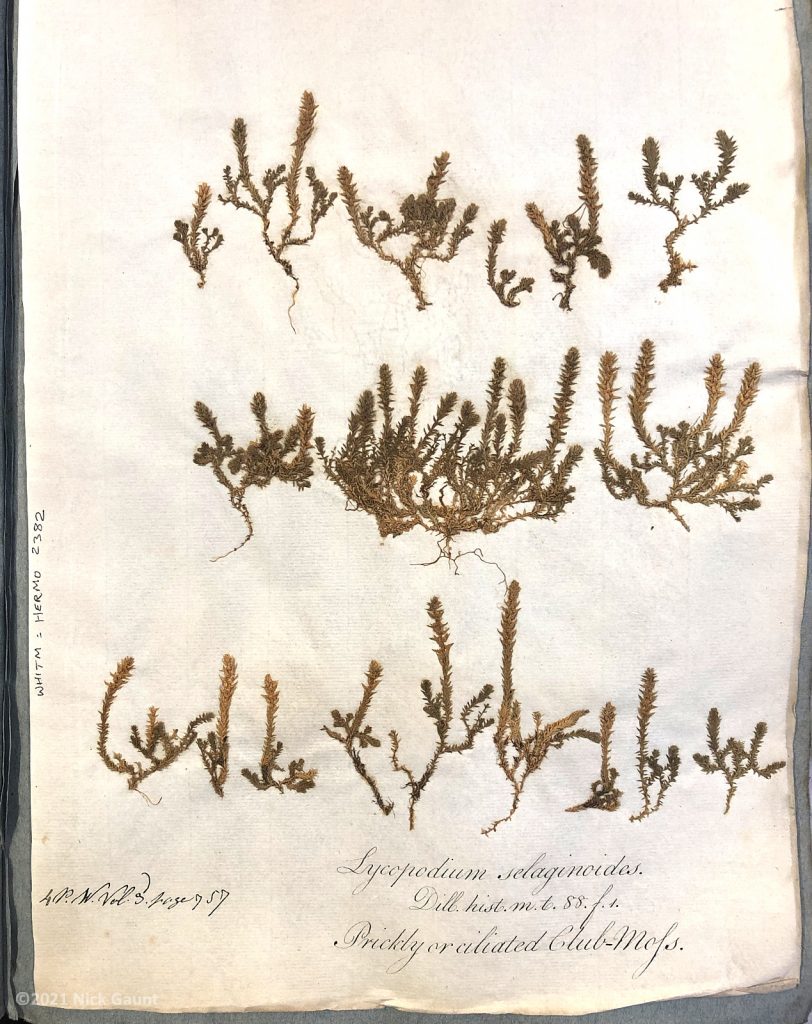 WHITM : HERMO 2382
Lycopodium selaginoides.
Dill. hist. m. t. 88. f. 1.
4 P. W. Vol. 3. page 757
Prickly or ciliated Club-Moſs.
©2021 Nick Gaunt